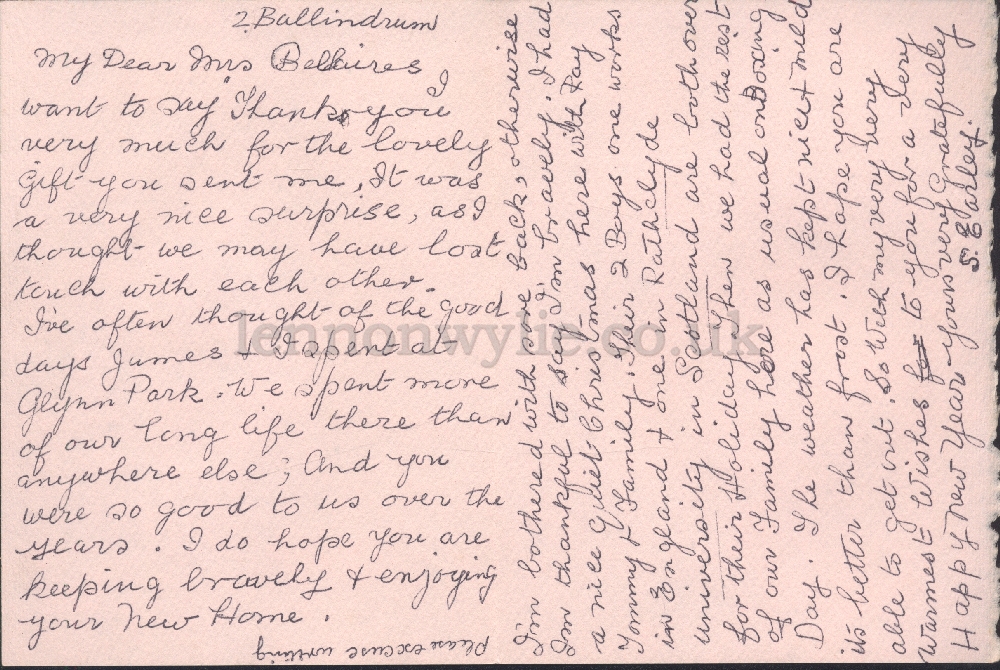 2 Ballindrum
My Dear Mrs Bellires, I
want to say "Thank you
very much for the lovely
Gift you sent me, It was
a very nice surprise, as I
thought we may have lost
touch with each other.
I've often thought of the good
days James & I spent at
Glynn Park. We spent more
of our long life there than
anywhere else; And you
were so good to us over the
years. I do hope you are
keeping bravely & enjoying
your New Home.
I'm bothered with sore back, otherwise
I'm thankful to say I'm bravely. I had
a nice Quiet Christmas here with Ray
Tommy & Family. Their 2 Boys one works
in England & one in Rathclyde
university in Scotland are both over
for their Holiday, then we had the rest
of our Family here as usual on Boxing
Day. The weather has kept nice & mild
its better than frost. I hope you are
able to get out. So With my very very
Warmest Wishes for to you for a Very
Happy New Year Yours very Gratefully
S. Earley.
please excuse writing
lennonwylie.co.uk